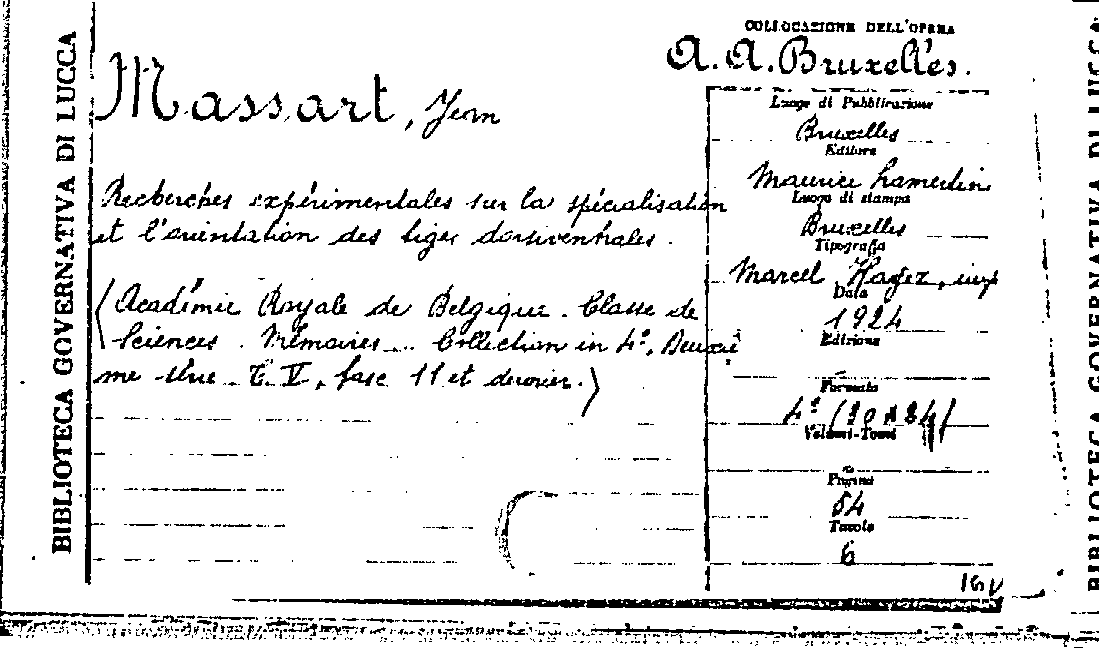 BIBLIOTECA GOVERNATIVA DI LUCCA
COLLOCAZIONE DELL'OPERA
A. A. Bruxelles.
Massart, Jean
Recherches expérimentales sur la spécialisation
et l'orientation des tiges dorsiventrales.
(Académie Royale de Belgique. Classe de
Sciences. Mémoires. Collection in 4°. Deuxiè
me série T. V, fasc 11 et dernier.)
Luogo di Pubblicazione
Bruxelles
Editore
Maurice Lamertin
Luogo di stampa
Bruxelles
Tipografia
Marcel Hayez, imp
Data
1924
Edizione
Formato
4°
Volumi-Tomi
Pagine
54
Tavole
6
BIBLIOTECA GOVERNATIVA DI LUCCA